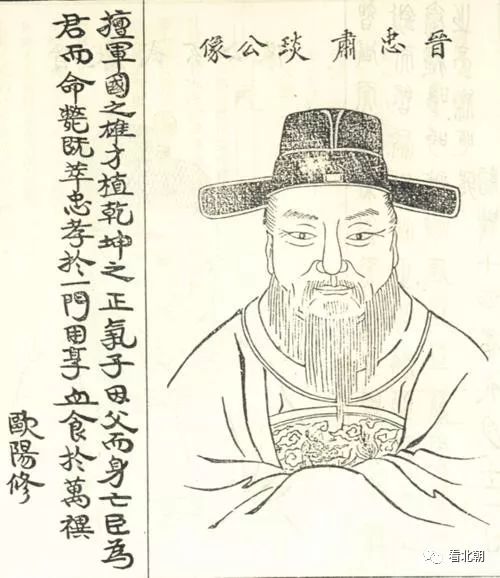 晉忠肅琰公像
擅軍國之雄才植乾坤之正氣子囙父而身亡臣為
君而命斃既萃忠孝於一門用享血食於萬禩
歐陽修
看北朝